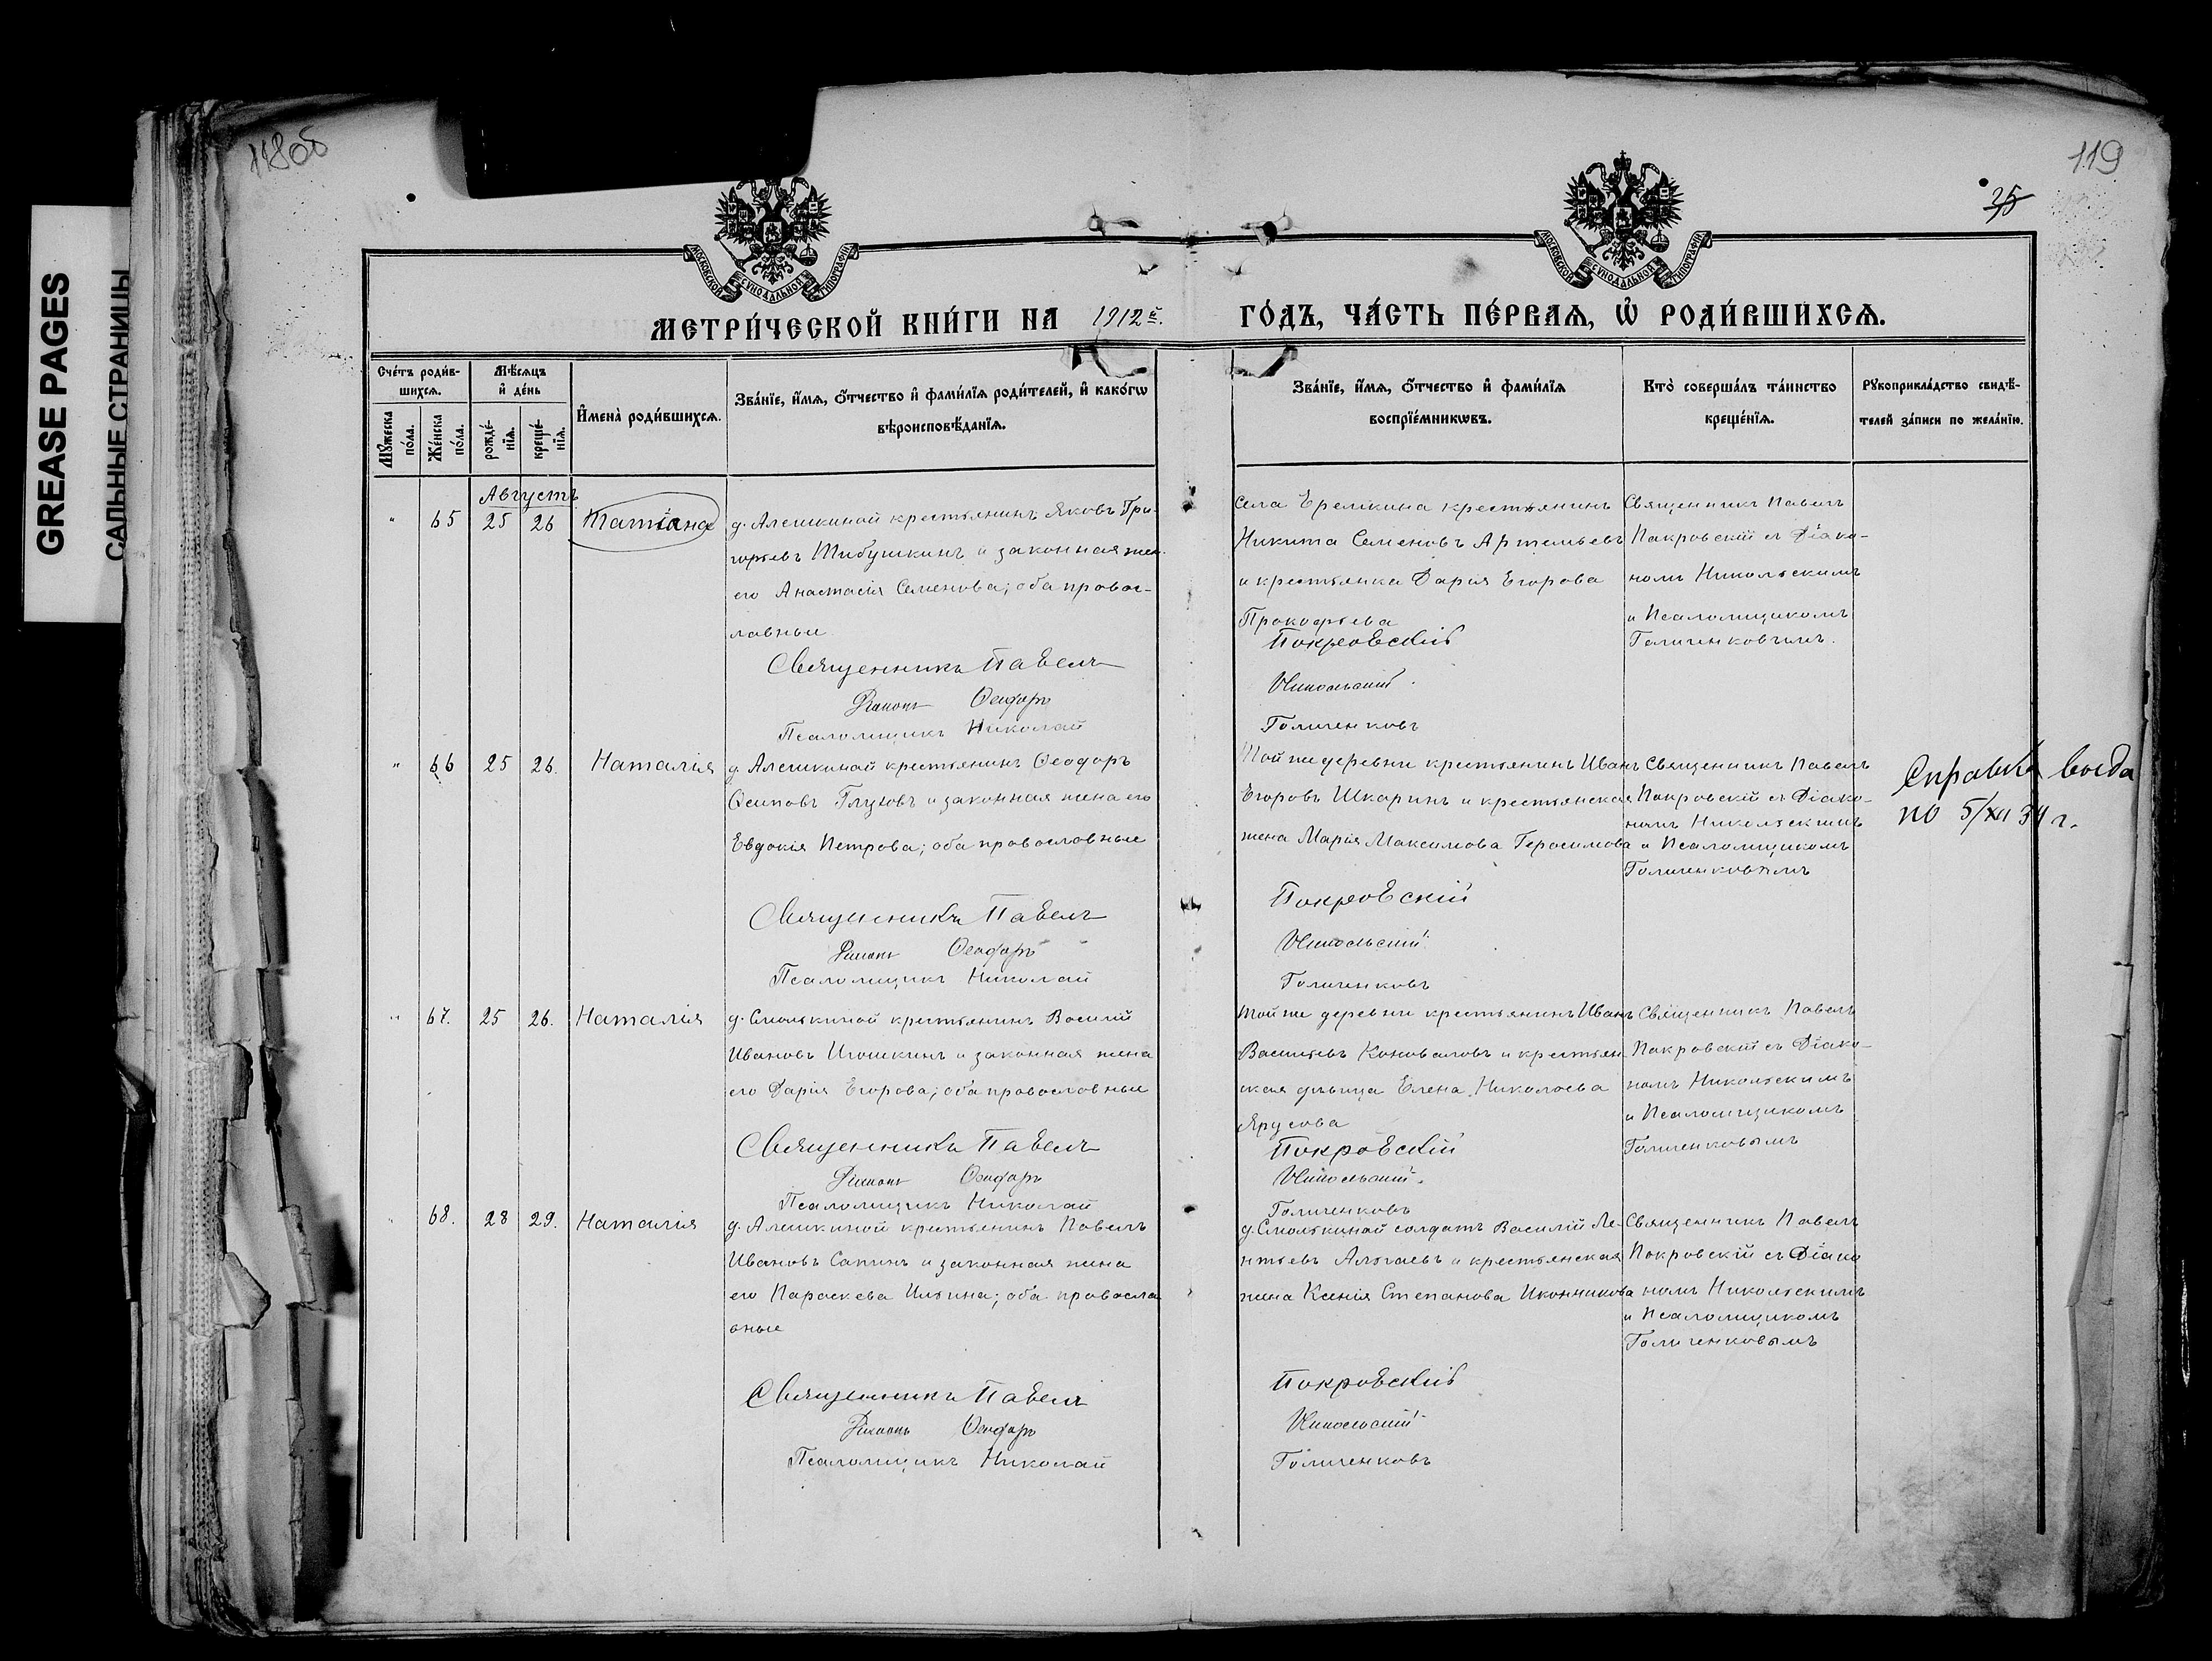 GREASE PAGES
САЛЬНЫЕ СТРАНИЦЫ
118об
119
35
МОСКОВСКОЙ СУНОДАЛЬНОЙ ТИПОГРАФІИ
МОСКОВСКОЙ СУНОДАЛЬНОЙ ТИПОГРАФІИ
МЕТРИ́ЧЕСКОЙ КНИ́ГИ НА 1912й.
ГО́ДЪ, ЧА́СТЬ ПЕ́РВАЯ, Ѡ РОДИ́ВШИХСЯ.
Сче́тъ роди́в-
шихся.
Мꙋжеска
по́ла.
Же́нска
по́ла.
Мѣ́сяцъ
и҆ де́нь
рожде́-
нїя.
креще́-
нїя.
И҆мена̀ роди́вшихся.
Зва́нїе, и҆́мя, ѻ҆́тчество и҆ фами́лїя роди́телей, и҆ како́гѡ
вѣроисповѣ́данїя.
Зва́нїе, и҆́мя, ѻ҆́тчество и҆ фами́лїя
воспрїе́мникѡвъ.
Кто̀ соверша́лъ та́инство
креще́нїя.
Рꙋкоприкла́дство свидѣ́-
телей за́писи по жела́нїю.
Августъ
" 65 25 26 Татіана
д. Алешкиной крестьянинъ Яковъ Гри-
горьевъ Тибушкинъ и законная жен.
его Анастасія Семенова; оба правос-
лавные
Священникъ Павелъ
Діаконъ Ѳеодоръ
Псаломщикъ Николай
Села Ерелкина крестьянинъ
Никита Семеновъ Артемьевъ
и крестьянка Дарія Егорова
Прокофьева
Покровскій
Никольский.
Голиченковъ
Священникъ Павелъ
Покровскій съ Діако-
номъ Никольскимъ
и Псаломщикомъ
Голиченковымъ.
" 66 25 26. Наталія
д. Алешкиной крестьянинъ Ѳеодоръ
Осиповъ Глуховъ и законная жена его
Евдокія Петрова; оба православные
Священникъ Павелъ
Діаконъ Ѳеодоръ
Псаломщикъ Николай
Той же деревни крестьянинъ Иванъ
Егоровъ Шкаринъ и крестьянская
жена Марія Максимова Герасимова
Покровскій
Никольский.
Голиченковъ
Священникъ Павелъ
Покровскій съ Діако-
номъ Никольскимъ
и Псаломщикомъ
Голиченковымъ
Справка выда
но 5/XII 34 г.
" 67. 25 26. Наталія
д. Смолькиной крестьянинъ Василій
Ивановъ Игошкинъ и законная жена
его Дарія Егорова; оба православные
Священникъ Павелъ
Діаконъ Ѳеодоръ
Псаломщикъ Николай
Той же деревни крестьянинъ Иванъ
Васильевъ Коноваловъ и крестьян-
ская дѣвица Елена Николаева
Ярусова
Покровскій
Никольский.
Голиченковъ
Священникъ Павелъ
Покровскій съ Діако-
номъ Никольскимъ
и Псаломщикомъ
Голиченковымъ
" 68. 28 29. Наталія
д. Алешкиной крестьянинъ Павелъ
Ивановъ Сапинъ и законная жена
его Параскева Ильина; оба правосла
вные
Священникъ Павелъ
Діаконъ Ѳеодоръ
Псаломщикъ Николай
д. Смолькиной солдатъ Василій Ле-
нтьевъ Алогаевъ и крестьянская
жена Ксенія Степанова Иконникова
Покровскій
Никольский
Голиченковъ
Священникъ Павелъ
Покровскій съ Діако
номъ Никольскимъ
и Псаломщикомъ
Голиченковымъ